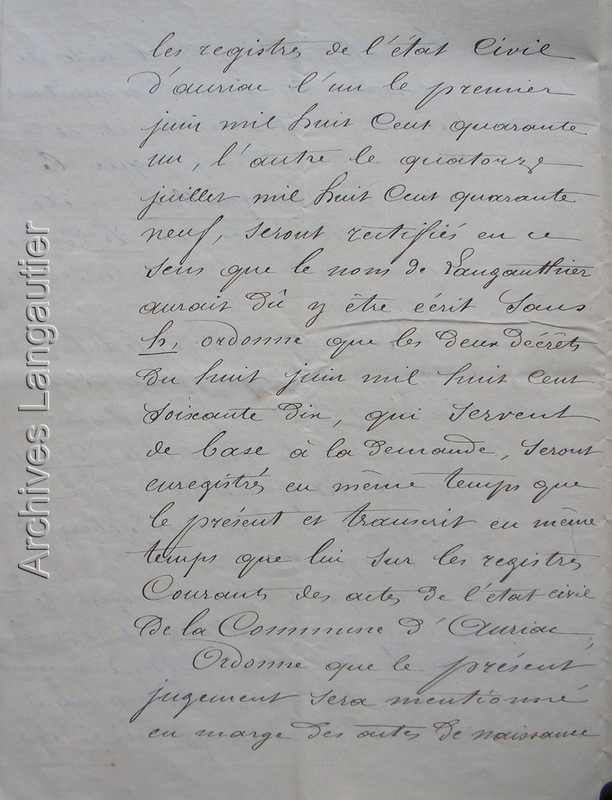 les registres de l'état Civil
d'auriac l'un le premier
juin mil huit Cent quarante
un, l'autre le quatorze
juillet mil huit Cent quarante
neuf, seront rectifiés en ce
sens que le nom de Langauthier
aurait dû y être écrit sans
h, ordonne que les deux décrets
du huit juin mil huit Cent
soixante dix, qui servent
de base à la demande, seront
enregistrés en même temps que
le présent et transcrit en même
temps que lui sur les registres
Courants des actes de l'état civil
de la Commune d'Auriac,
Ordonne que le présent
jugement sera mentionné
en marge des actes de naissance
Archives Langautier